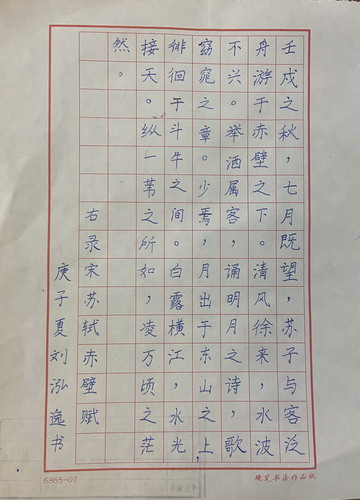 壬戌之秋，七月既望，苏子与客泛
舟游于赤壁之下。清风徐来，水波
不兴。举酒属客，诵明月之诗，歌
窈窕之章。少焉，月出于东山之上，
徘徊于斗牛之间。白露横江，水光
接天。纵一苇之所如，凌万顷之茫
然。
右录宋苏轼赤壁赋
庚子夏刘泓逸书
6865-07
硬笔书法作品纸